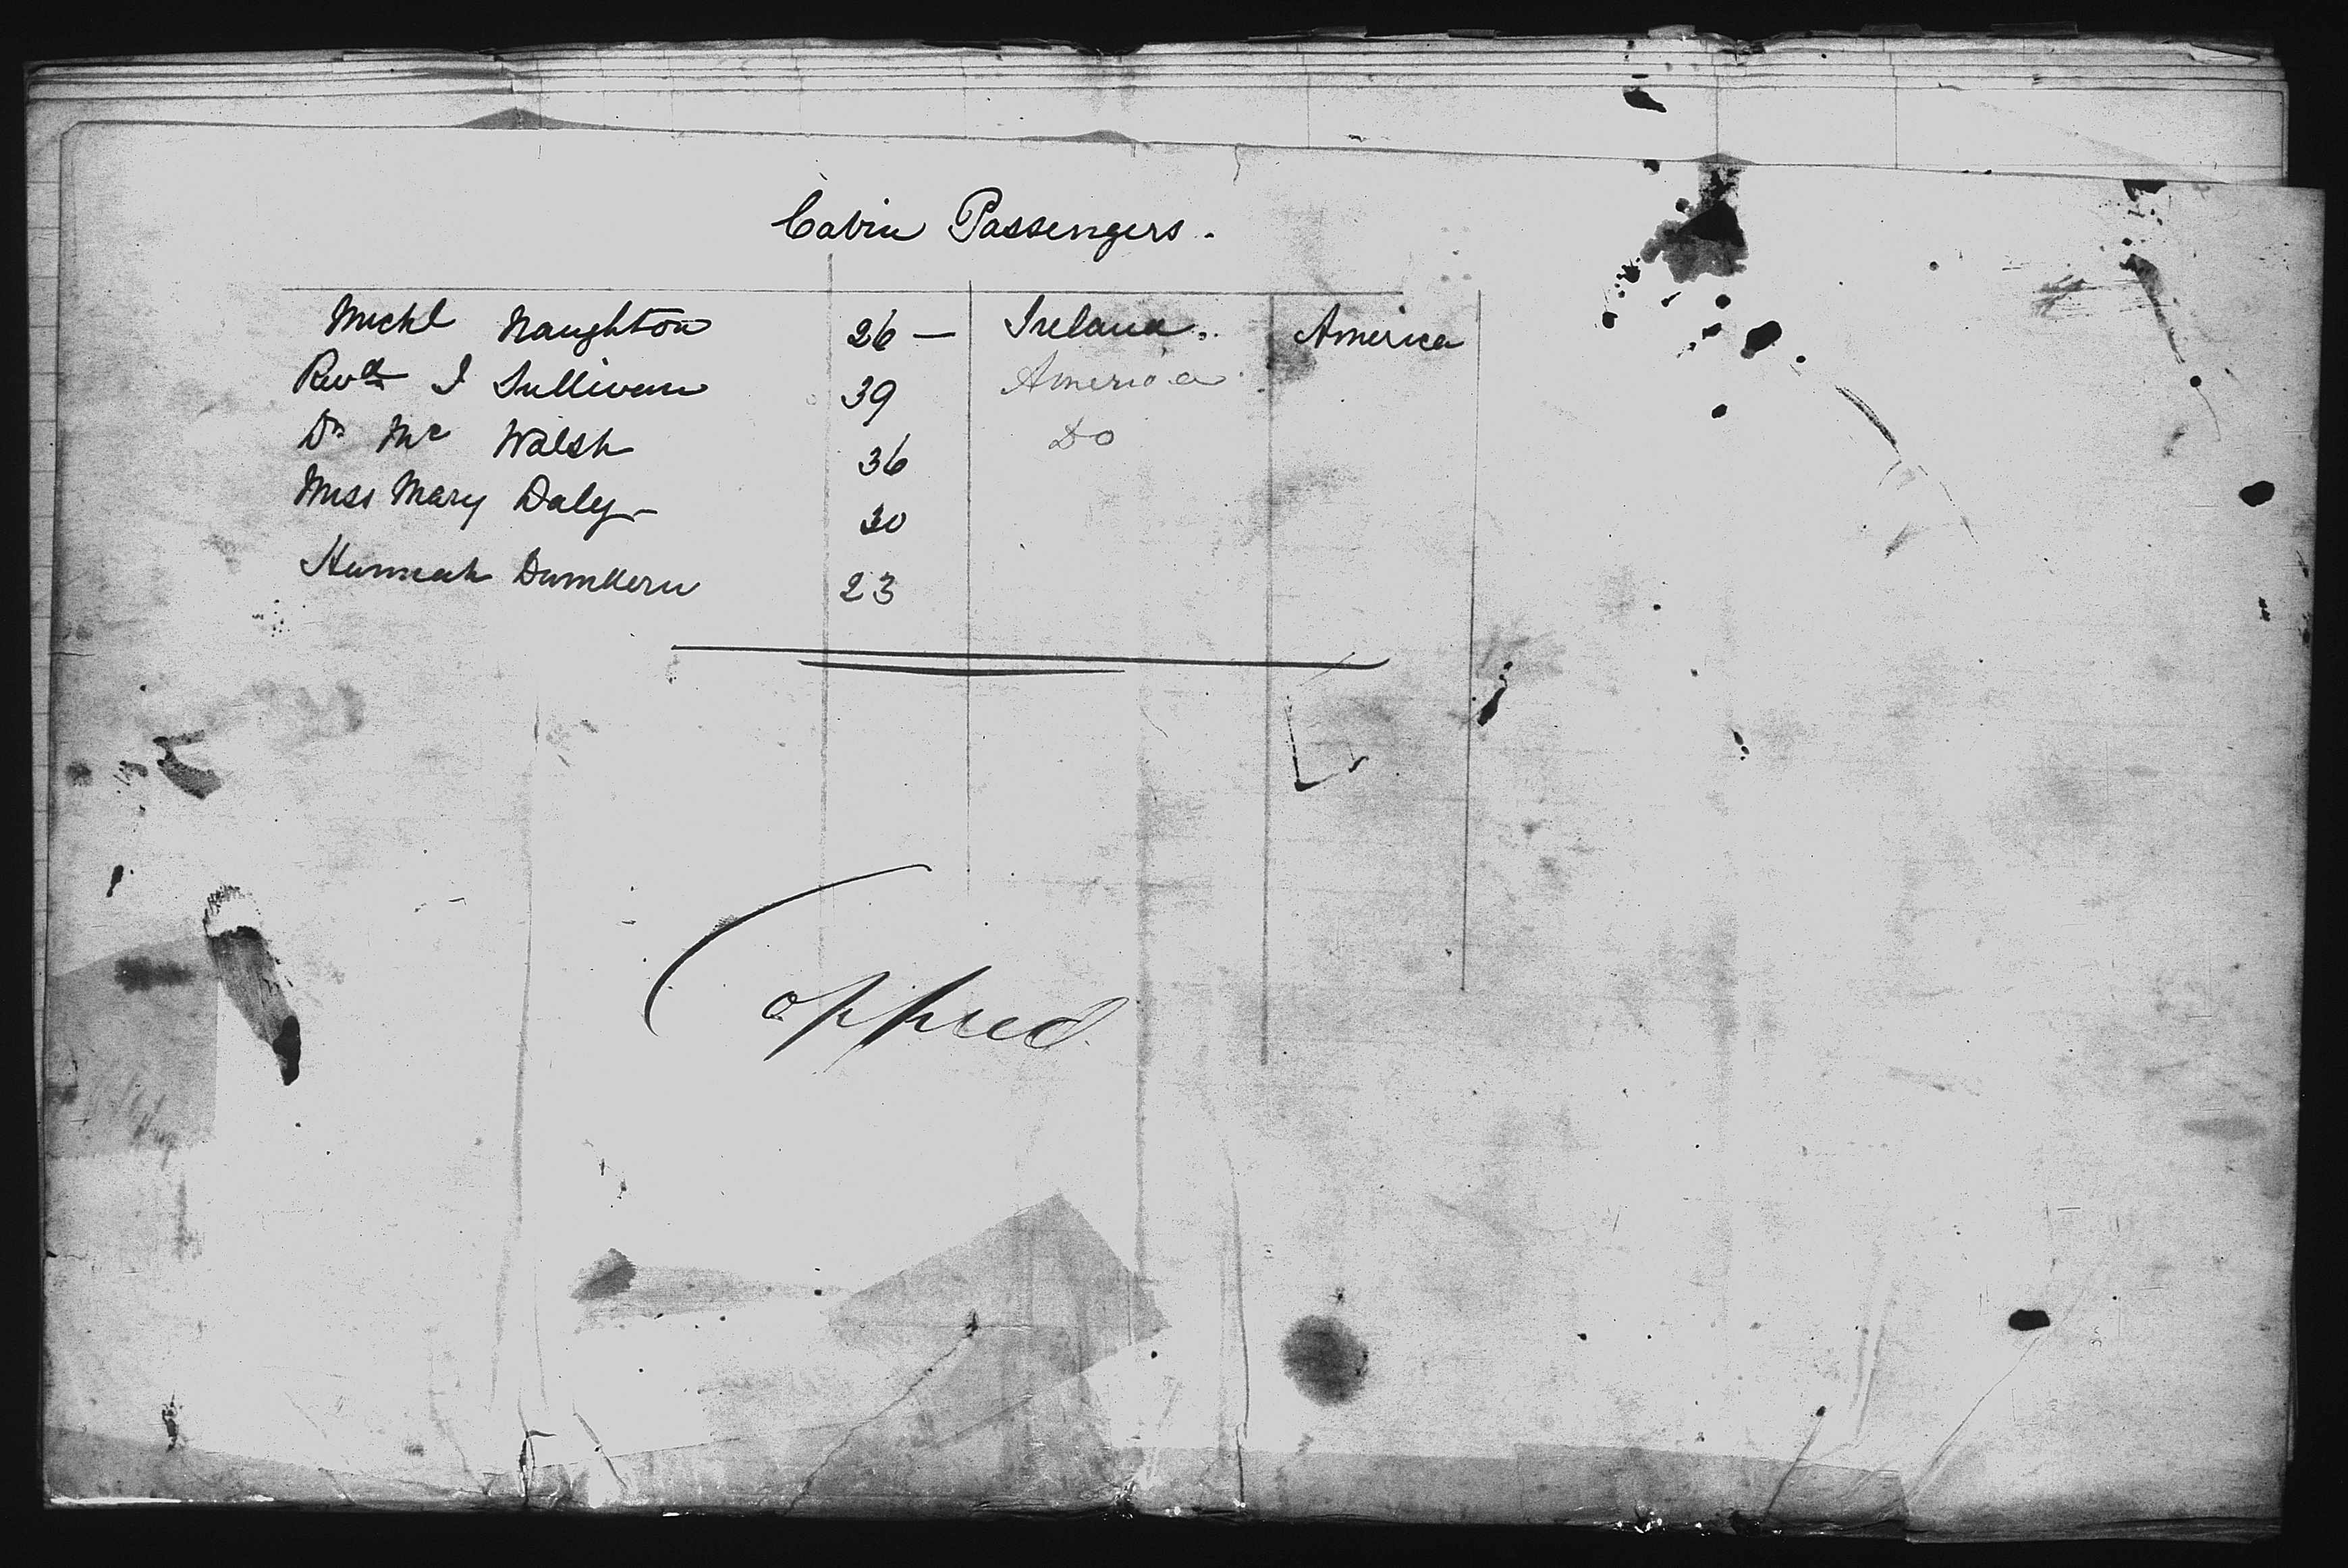 Cabin Passengers.
Michl Naughton 26 — Ireland. America
Revd J Sullivan 39 America
Dr Mc Walsh 36 Do
Miss Mary Daly - 30
Hannah 23
Coppied